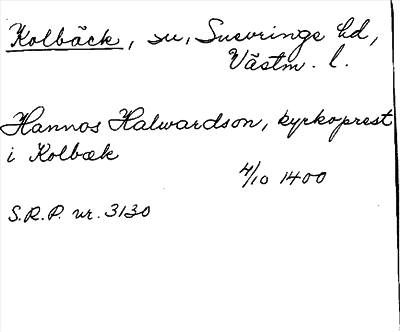 Kolbäck, sn, Snevringe hd,
Västm. l.
Hannos Halwardson, kyrkoprest
i Kolbæk
4/10 1400
S.R.P. nr. 3130